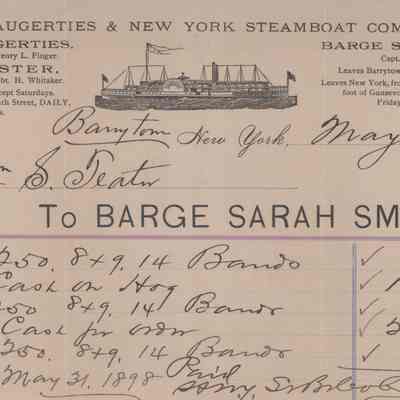 AUGERTIES & NEW YORK STEAMBOAT COM
GERTIES.
enry L. Finger.
STER.
bt. H. Whitaker.
cept Saturdays.
th Street, DAILY,
BARGE S
Capt.
Leaves Barrytow
Leaves New York, fro
foot of Gansevo
Friday
Barrytown New York, May
S. Teator
TO BARGE SARAH SM
250. 8+9. 14 Bands
Cash on Hog
250 8+9. 14 Bands
Cash for order
250. 8+9. 14 Bands
May 31, 1898 Paid